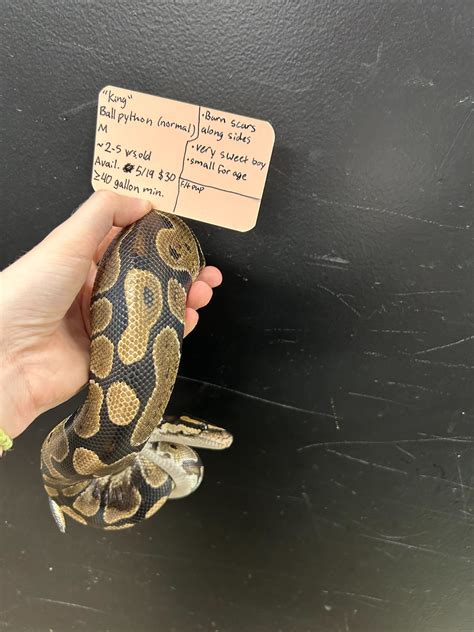 "King"
Ball python (normal)
M
~2-5 yrs old
Avail. 5/19 $30
≥40 gallon min.
• Burn scars
along sides
• very sweet boy
• small for age